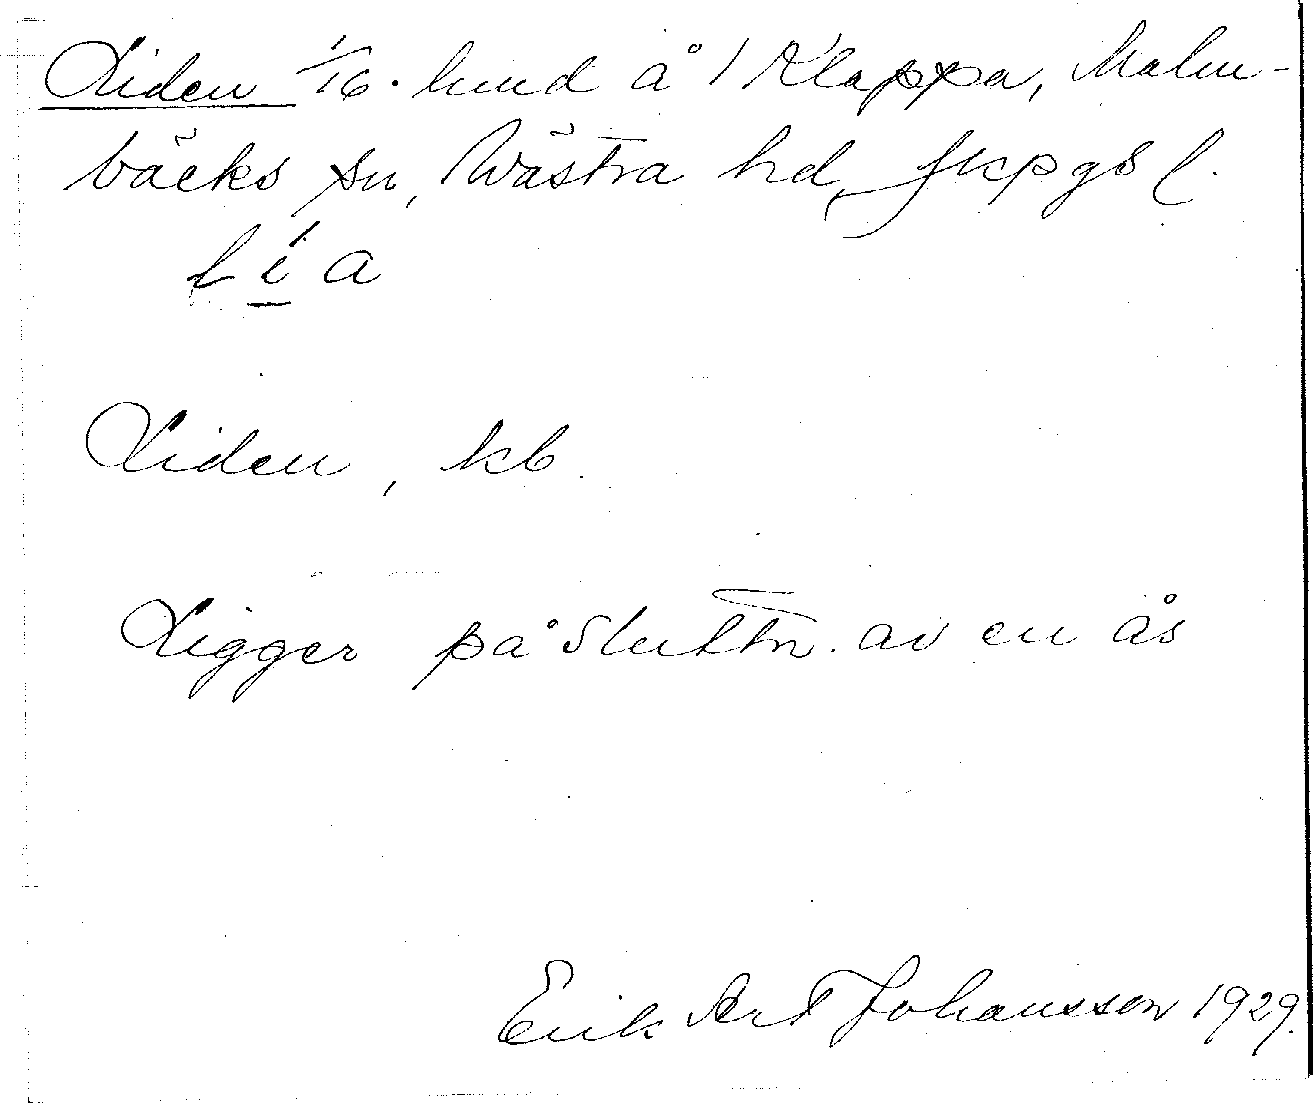 Liden 1/16. lund å 1 Klappa, Malm-
bäcks sn, Västra hd, Jkpgs l.
lía
Liden, kb.
Ligger på sluttn. av en ås
Erik Art Johansson 1929.